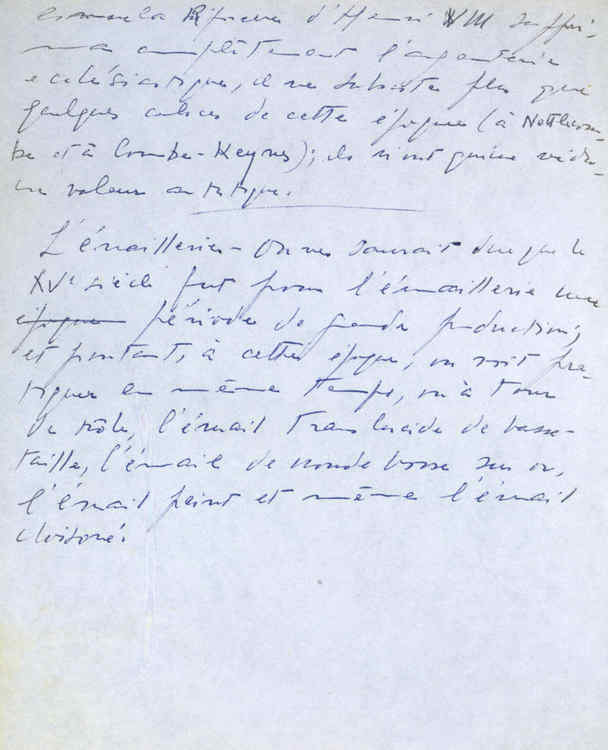 la Réforme d'Henri VIII suppri-
ma complètement l'argenterie
ecclésiastique, il ne subsiste plus que
quelques calices de cette époque (à Nettlecom-
be et à Combe-Keynes); ils n'ont guère
valeur artistique.
L'émaillerie - On ne saurait dire que le
XVe siècle fut pour l'émaillerie une
époque période de grande production;
et pourtant, à cette époque, on voit pra-
tiquer en même temps, ou à tour
de rôle, l'émail translucide de basse-
taille, l'émail de ronde bosse sur or,
l'émail peint et même l'émail
cloisoné.